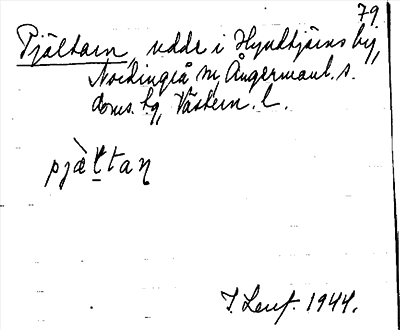 79.
Pjältarn, uddr i Hyndtjärns by,
Nordingrå sn, Ångermanl. s.
doms. hg, Västern. l.
pjæ̀ltan
J. Lenf. 1944.